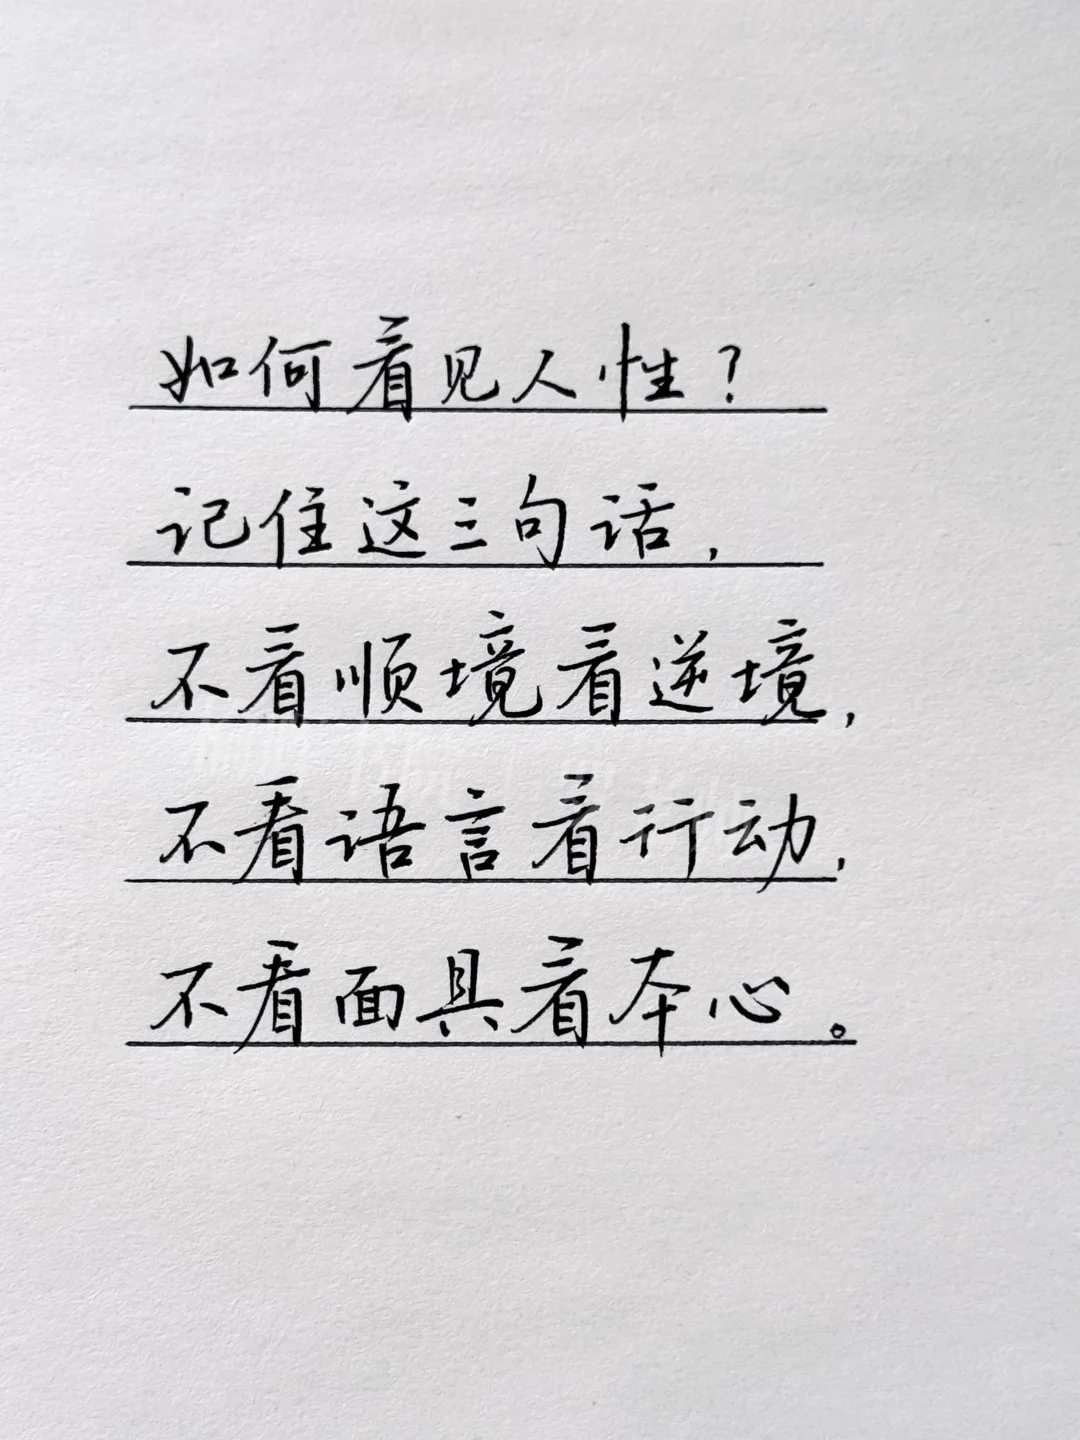 如何看见人性？
记住这三句话，
不看顺境看逆境，
不看语言看行动，
不看面具看本心。